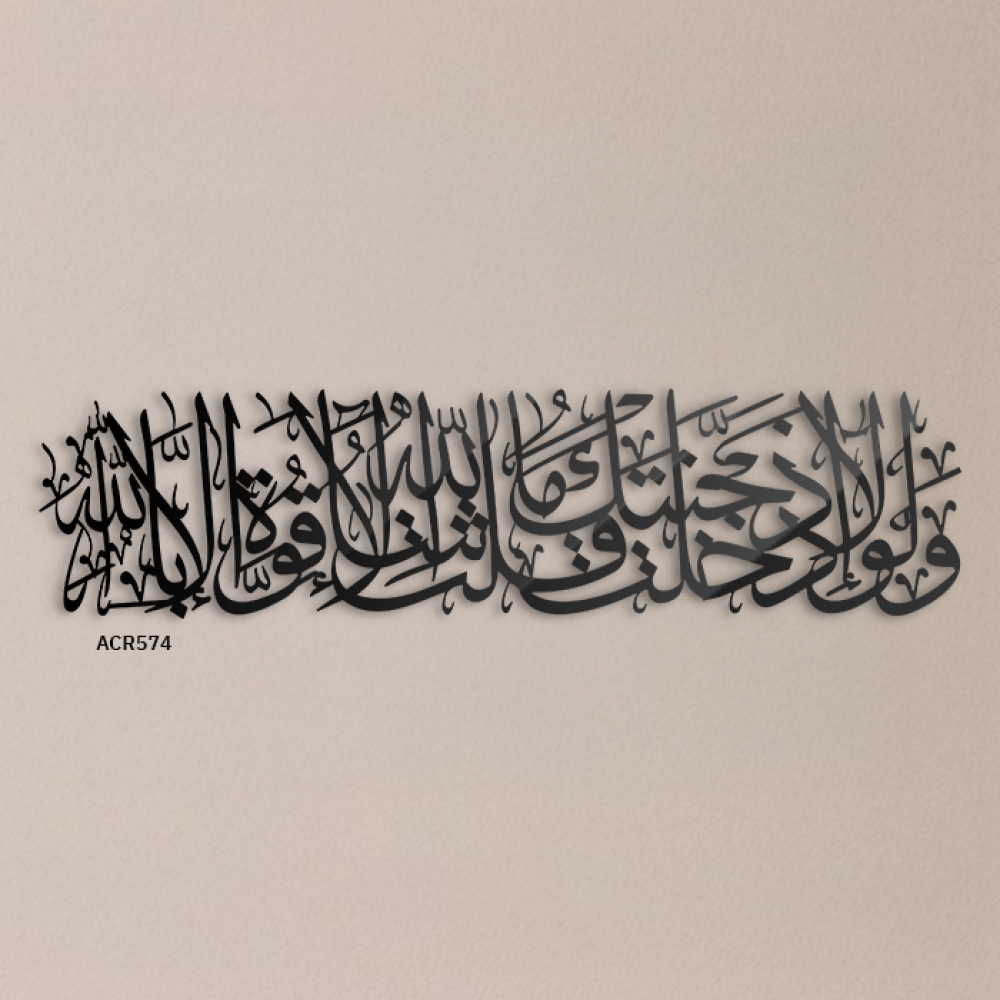 ولولا إذ دخلت جنتك قلت ما شاء الله لا قوة إلا بالله
ACR574